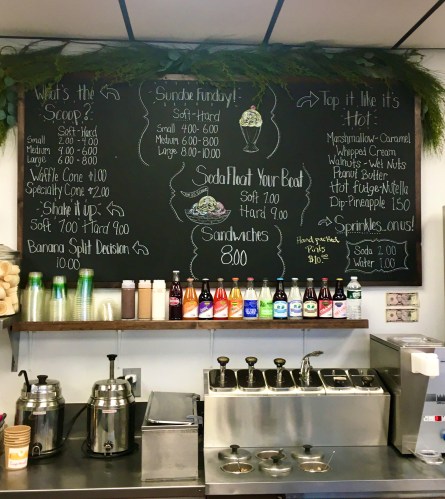 What's the
Scoop?
Soft-Hard
Small 2.00-4.00
Medium 4.00-6.00
Large 6.00-8.00
Waffle Cone +1.00
Specialty Cone +2.00
Shake it up
Soft 7.00 Hard 9.00
Banana Split Decision
10.00
Sundae Funday!
Soft-Hard
Small 4.00-6.00
Medium 6.00-8.00
Large 8.00-10.00
Soda Float Your Boat
Soft 7.00
Hard 9.00
Sandwiches
8.00
Hand packed
Pints
$10.00
Top it like it's
Hot:
Marshmallow-Caramel
Whipped Cream
Walnuts-Wet Nuts
Peanut Butter
Hot Fudge-Nutella
Dip-Pineapple 1.50
Sprinkles..on us!
Soda 2.00
Water 1.00